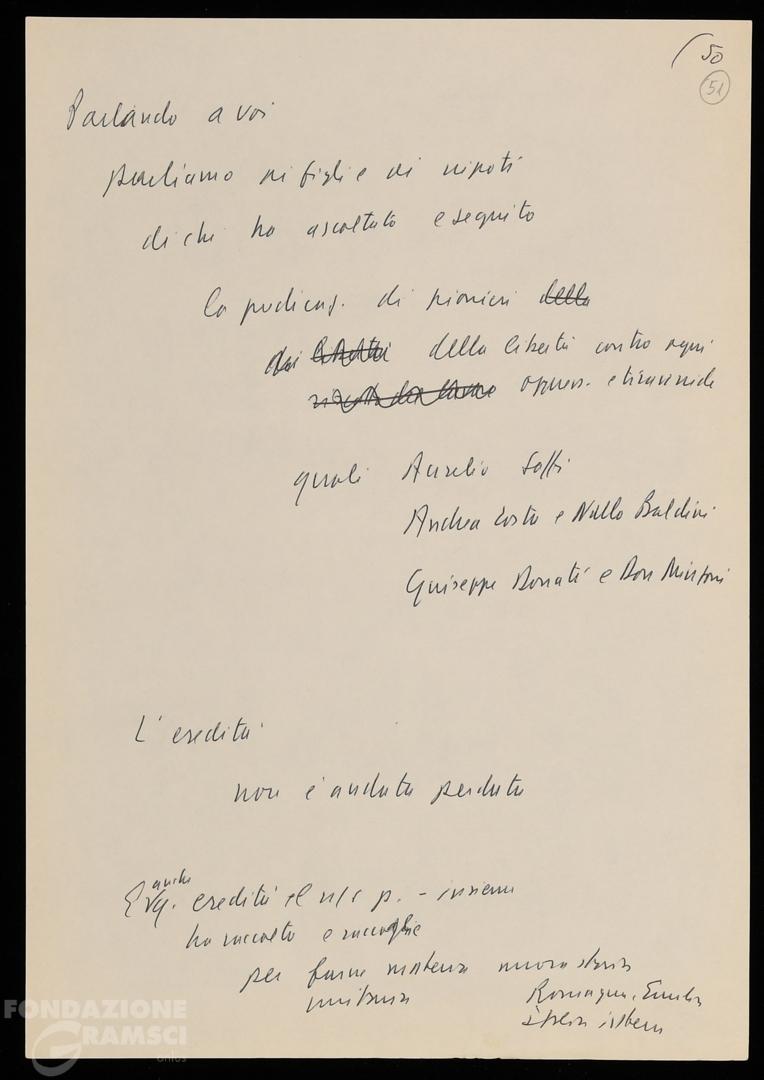 50
51
Parlando a voi
parliamo ai figli e ai nipoti
di chi ha ascoltato e seguito
la predicaz. di pionieri della
della libertà contro ogni
oppress. e tirannide
quali Aurelio Saffi
Andrea Costa e Nullo Baldini
Giuseppe Donati e Don Minzoni
L'eredità
non è andata perduta
anche
eredità il n/s p. - insieme
ha raccolto e raccoglie
per farne materia nuova storia
unitaria
Romagna, Emilia
intera
FONDAZIONE
GRAMSCI
onlus